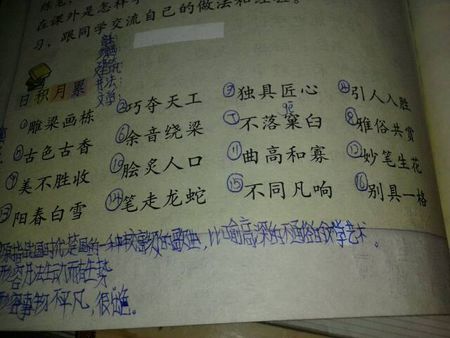 在课外是怎样学
习、跟同学交流自己的做法和
日积月累
①雕梁画栋 ②巧夺天工 ③独具匠心 ④引人入胜
⑤古色古香 ⑥余音绕梁 ⑦不落窠臼 ⑧雅俗共赏
⑨美不胜收 ⑩脍炙人口 ⑪曲高和寡 ⑫妙笔生花
⑬阳春白雪 ⑭笔走龙蛇 ⑮不同凡响 ⑯别具一格
原指战国时代楚国的一种较高级的歌曲，比喻高深的不通俗的文学艺术。
形容书法生动而有气势
形容事物不平凡，很出色。